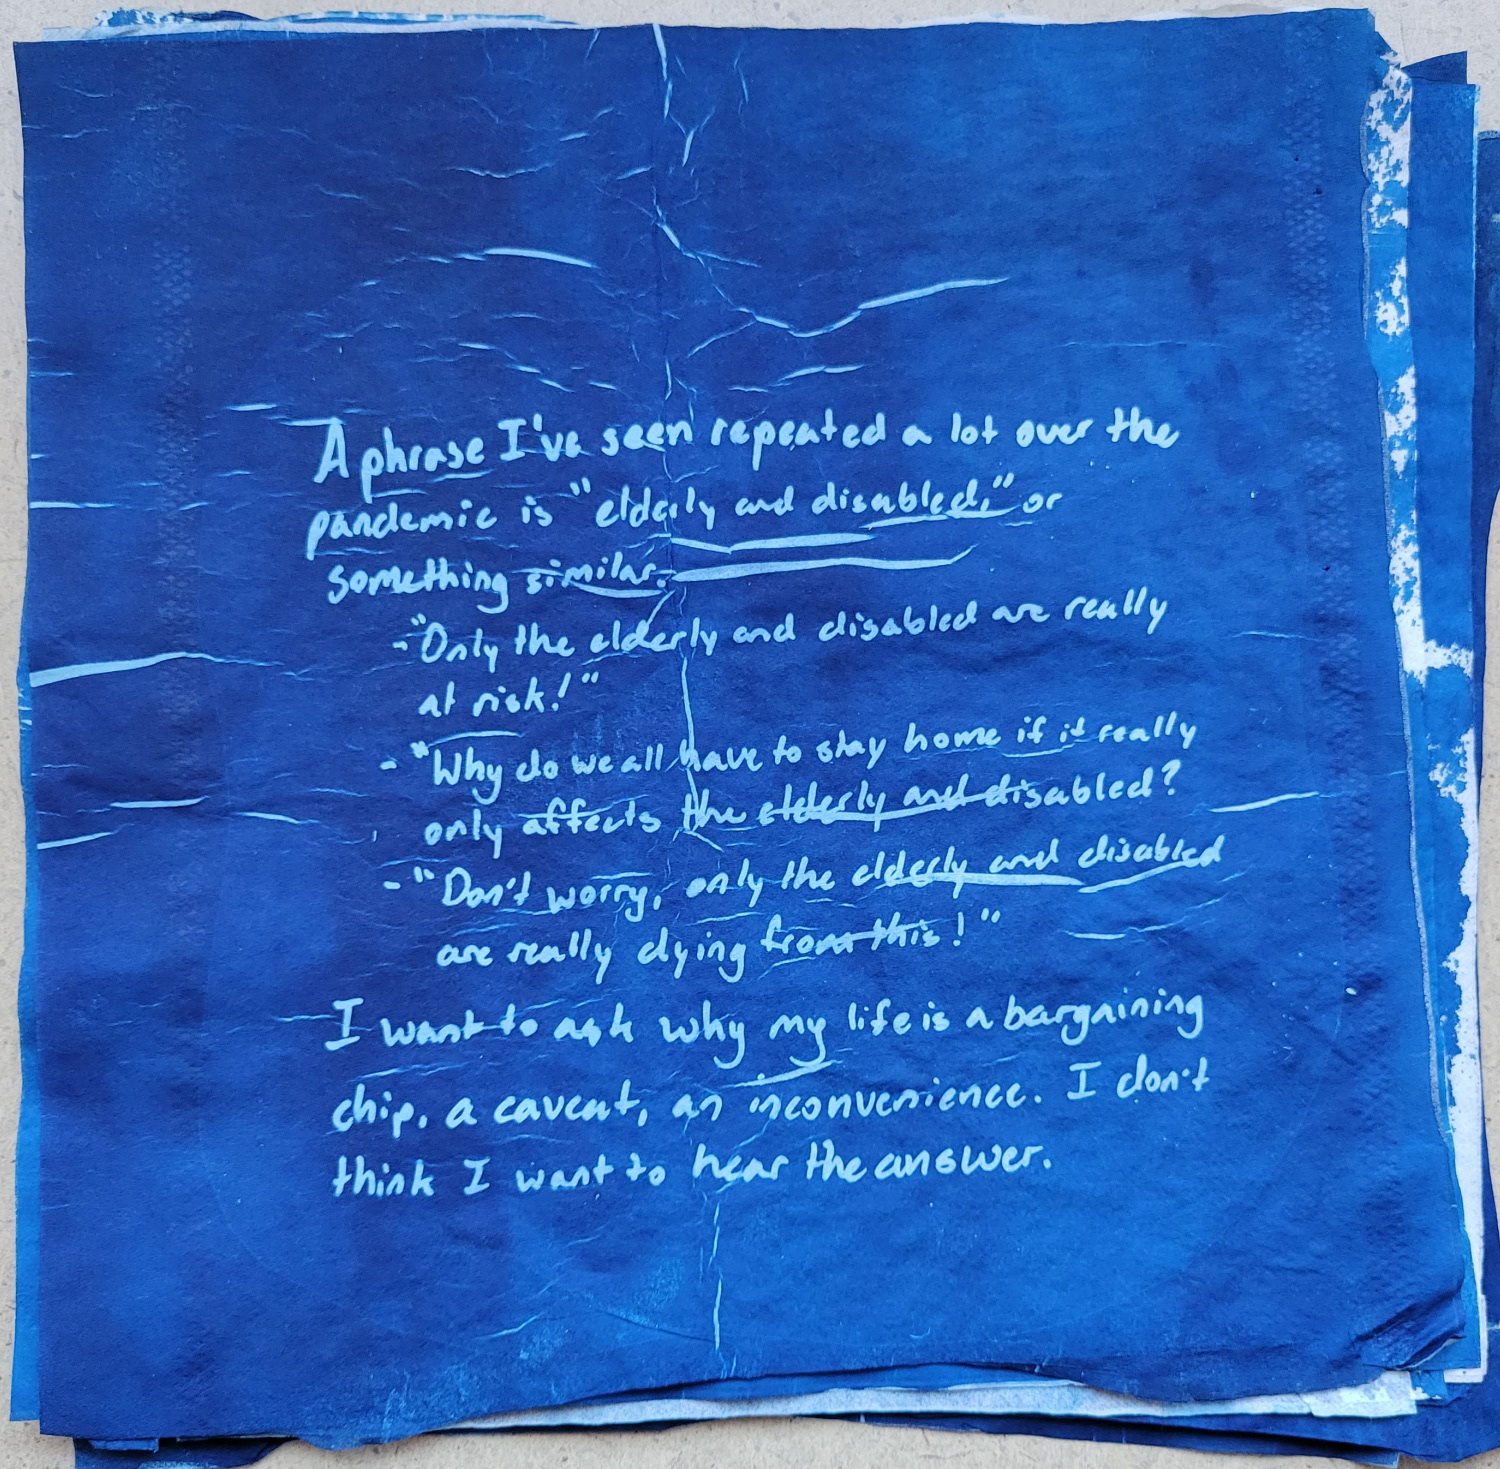 A phrase I've seen repeated a lot over the
pandemic is "elderly and disabled," or
something similar.
-"Only the elderly and disabled are really
at risk!"
-"Why do we all have to stay home if it really
only affects the elderly and disabled?
-"Don't worry, only the elderly and disabled
are really dying from this!"
I want to ask why my life is a bargaining
chip, a caveat, an inconvenience. I don't
think I want to hear the answer.